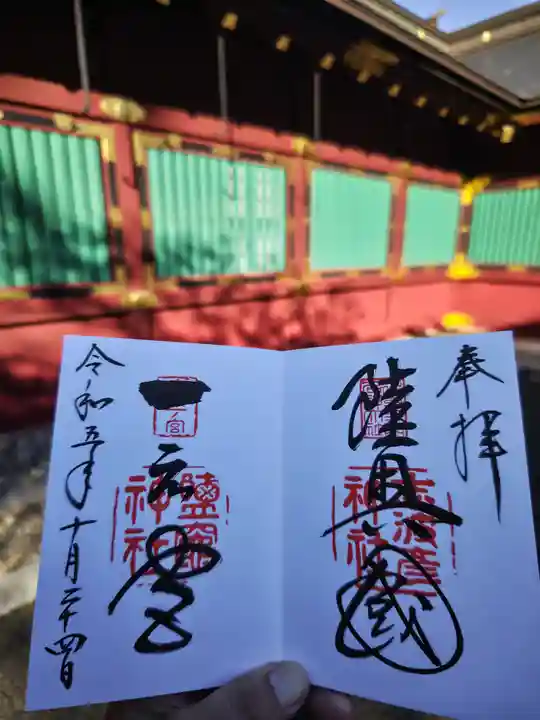 奉拝
陸奥國
志波彦
神社
一之宮
鹽竈
神社
令和五年十月二十四日